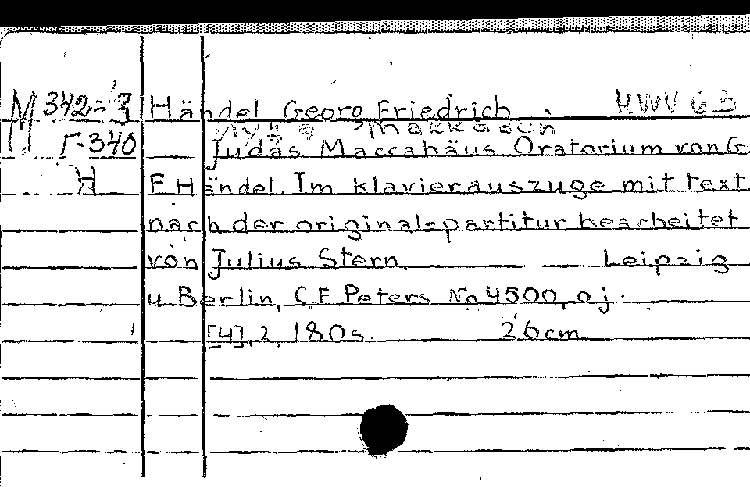 M 342-3 Händel Georg Friedrich. HWV 63
Γ-340
Judas Maccabäus Oratorium von G
H F Händel. Im Klavierauszuge mit text
nach der original-partitur bearbeitet
von Julius Stern Leipzig
u. Berlin, C F Peters No 4500, o j.
[4], 2, 180 s. 26 cm